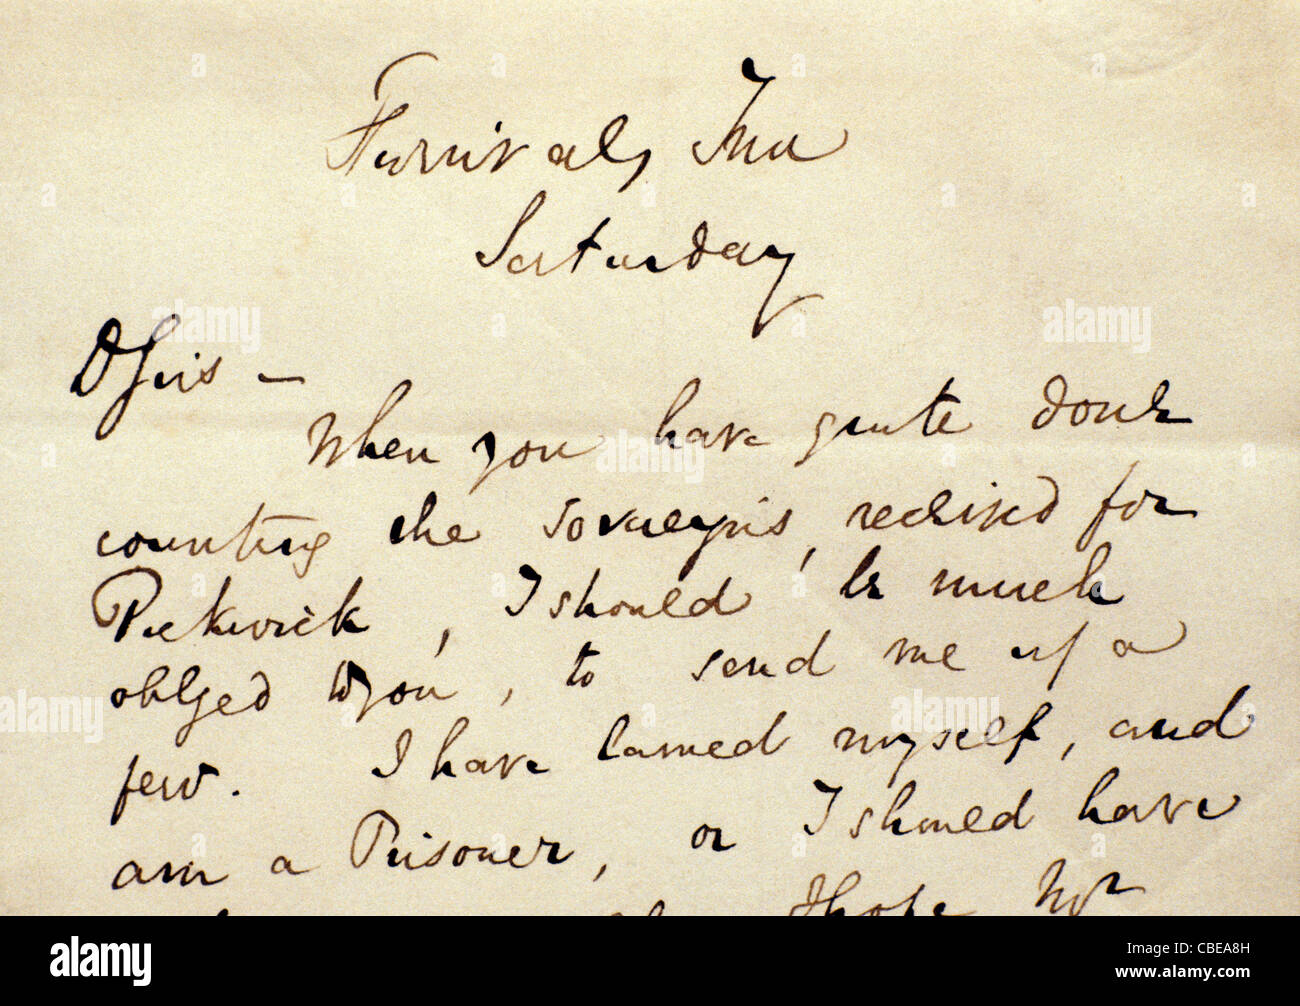 Furnivals Inn
Saturday
D Sirs –
When you have quite done
counting the sovereigns, received for
Pickwick, I should be much
obliged to you, to send me up a
few. I have lamed myself, and
am a Prisoner, or I should have
I hope Mr
alamy
www.alamy.com
CBEA8H